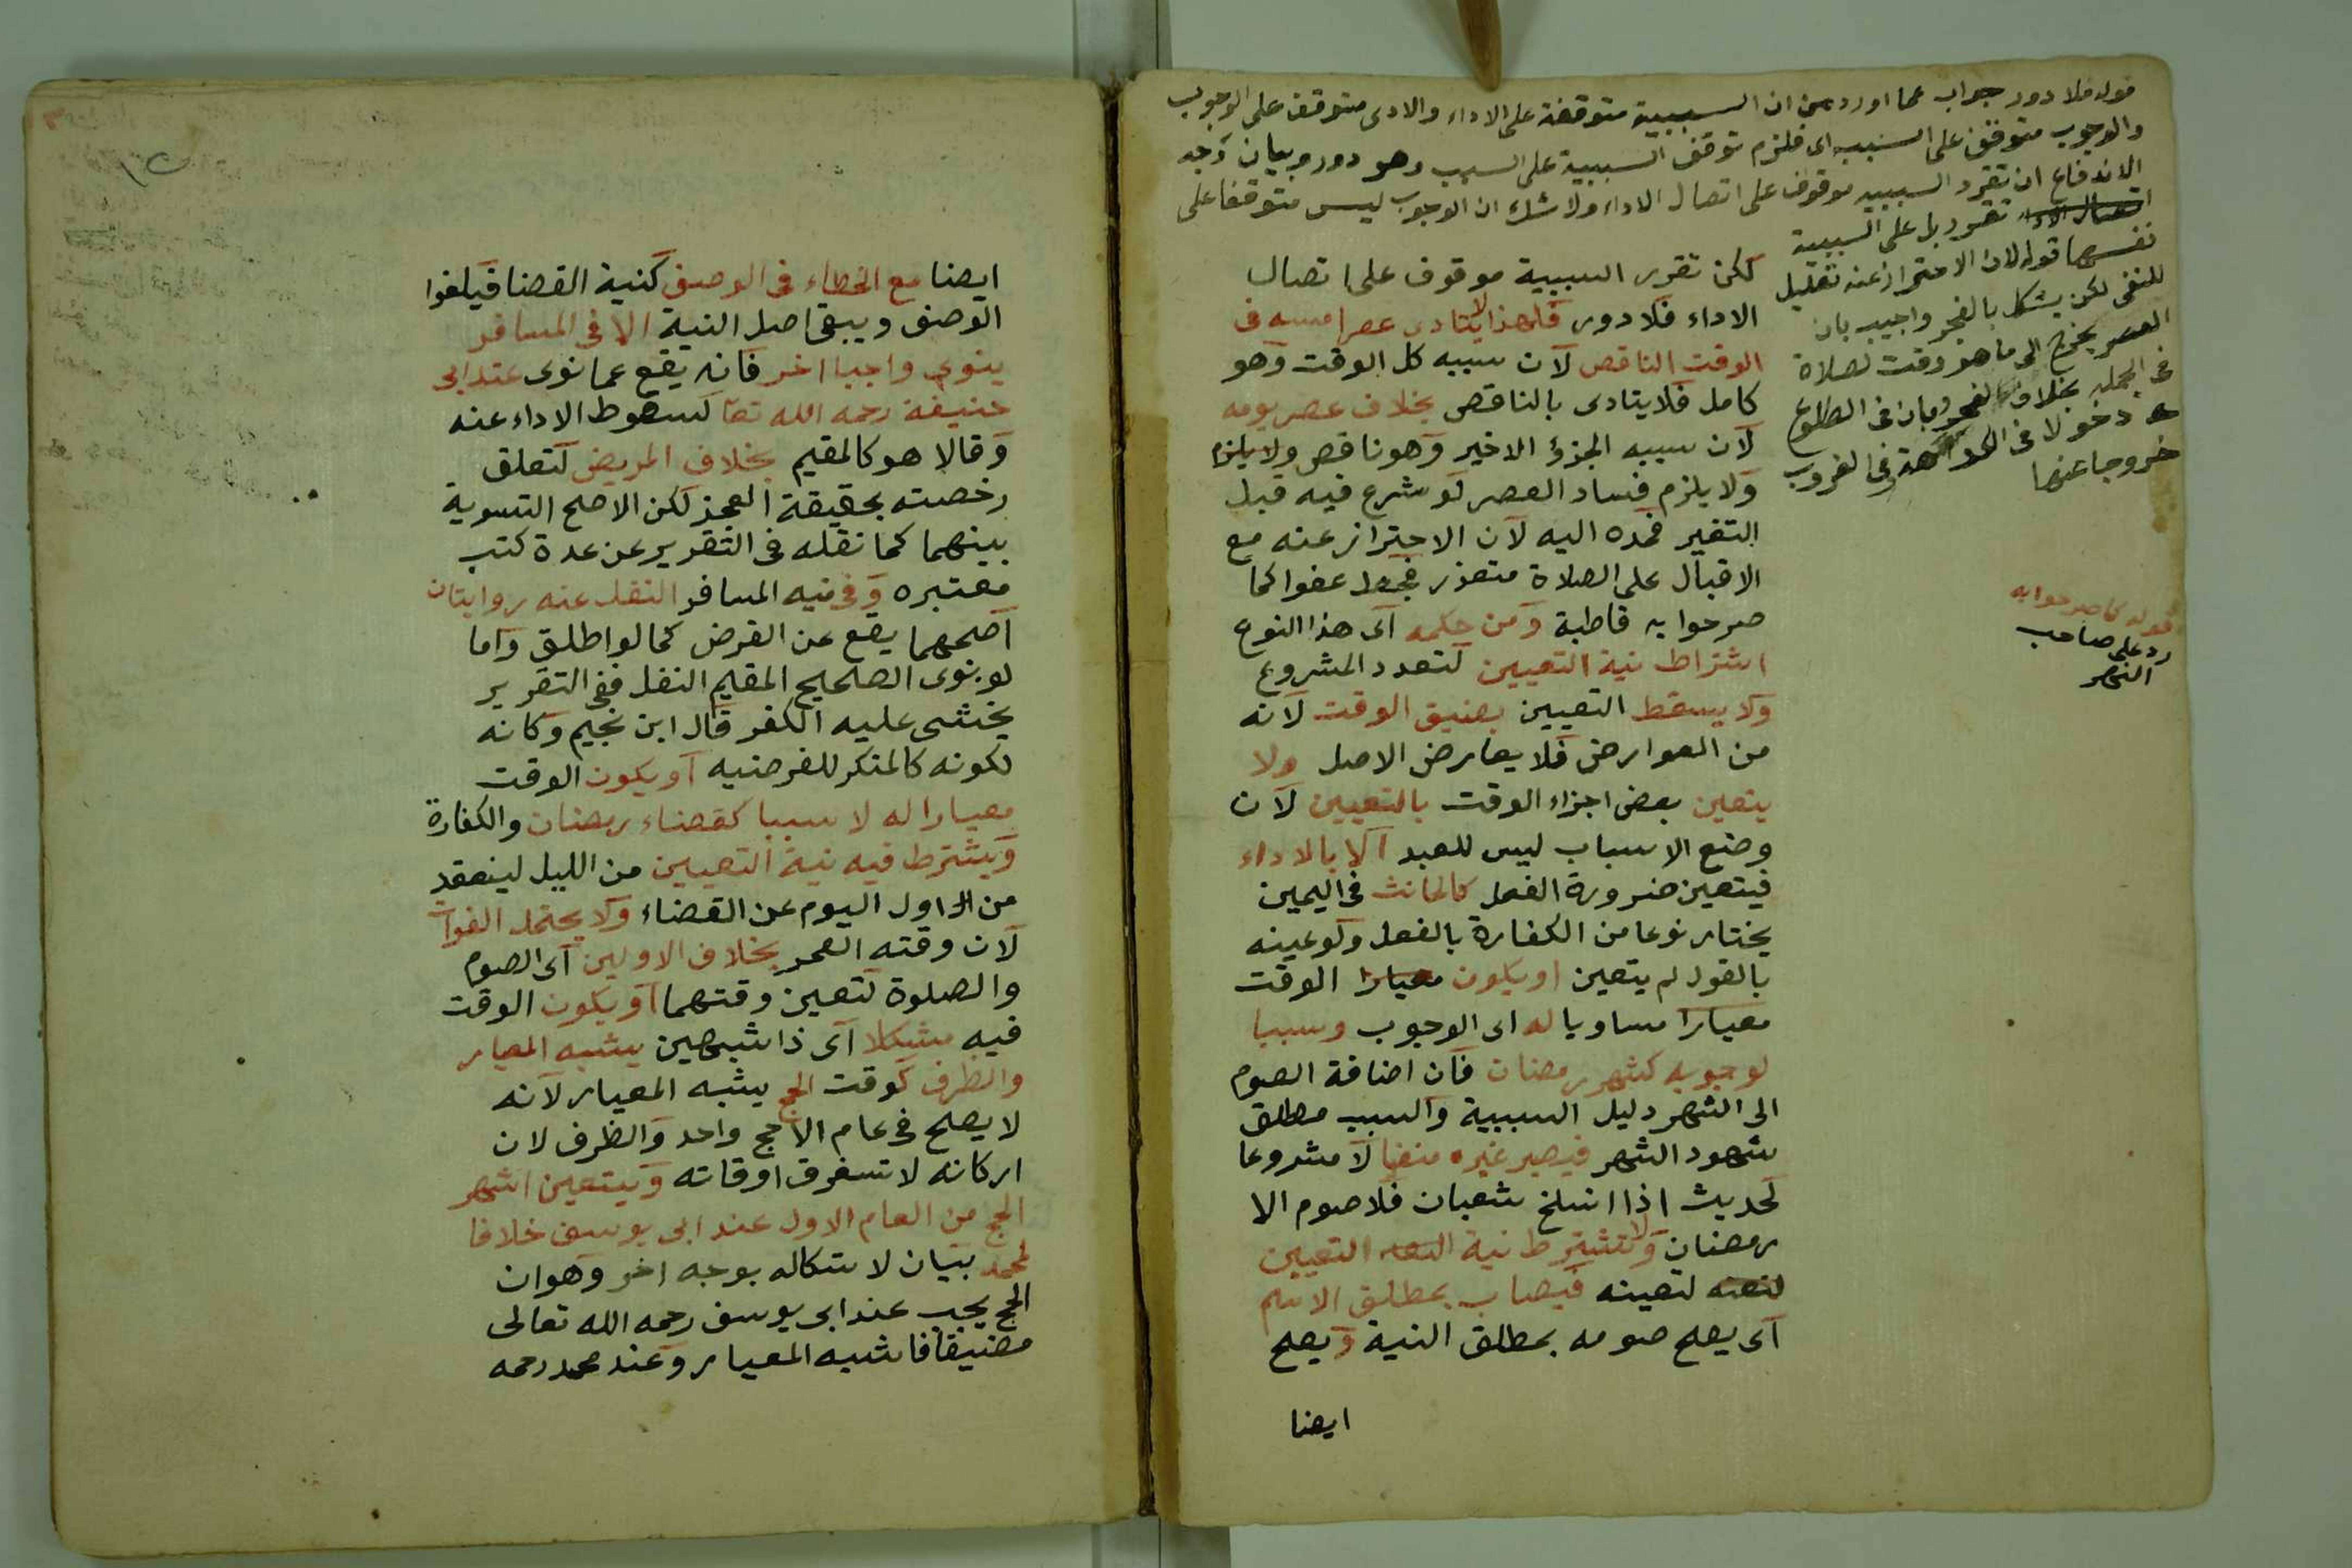 قوله فلا دور جواب عما اورد من ان السببية متوقفة على الاداء والادى متوقف على الوجوب
والوجوب متوقف على السببه اى فلزم توقف السببية على السبب وهو دور وبيان وجه
الاندفاع ان تقرر السببيه موقوف على اتصال الاداء ولا شك ان الوجوب ليس متوقفا على
اتصال الاداء تقرر بل على السببية
نفسها قوله لان الاحتراز عنه تعليل
للنفى لكن يشكل بالفجر واجيب بان
العصر يخرج الى ما هو وقت لصلاة
فى الجمله بخلاف الفجر وبان فى الطلوع
دخولا فى الكراهة وفى الغروب
خروجا عنها
لكن تقرر السببية موقوف على اتصال
الاداء فلا دور فلهذا لا يتادى عصر امسه فى
الوقت الناقص لان سببه كل الوقت وهو
كامل فلا يتادى بالناقص بخلاف عصر يومه
لان سببه الجزؤ الاخير وهو ناقص ولا يلزم
ولا يلزم فساد العصر لو شرع فيه قبل
التغير فمده اليه لان الاحتراز عنه مع
الاقبال على الصلاة متعذر فجعل عفوا كما
صرحوا به قاطبة ومن حكمه اى هذا النوع
اشتراط نية التعيين لتعدد المشروع
ولا يسقط التعيين بضيق الوقت لانه
من العوارض فلا يعارض الاصل ولا
يتعين بعض اجزاء الوقت بالتعيين لان
وضع الاسباب ليس للعبد الا بالاداء
فيتعين ضرورة الفعل كالحانث فى اليمين
يختار نوعا من الكفارة بالفعل ولو عينه
بالقول لم يتعين او يكون معيارا الوقت
معيارا مساويا له اى الوجوب وسببا
لوجوبه كشهر رمضان فان اضافة الصوم
الى الشهر دليل السببية والسبب مطلق
شهود الشهر فيصير غيره منفيا لا مشروعا
لحديث اذا انسلخ شعبان فلا صوم الا
رمضان ولا تشترط نية التعيين
لتعينه فيصاب بمطلق الاسم
اى يصح صومه بمطلق النية ويصح
ايضا
قوله كما صرحوا به
رد على صاحب
النهر
ايضا مع الخطاء فى الوصف كنية القضا فيلغوا
الوصف ويبقى اصل النية الا فى المسافر
ينوى واجبا اخر فانه يقع عما نوى عند ابى
حنيفة رحمه الله تعا لسقوط الاداء عنه
وقالا هو كالمقيم بخلاف المريض لتعلق
رخصته بحقيقة العجز لكن الاصح التسوية
بينهما كما نقله فى التقرير عن عدة كتب
معتبره وفى نيه المسافر النفل عنه روايتان
اصحهما يقع عن الفرض كما لو اطلق واما
لو نوى الصحيح المقيم النفل ففى التقرير
يخشى عليه الكفر قال ابن نجيم وكانه
لكونه كالمنكر للفرضيه او يكون الوقت
معيارا له لا سببا كقضاء رمضان والكفارة
ويشترط فيه نية التعيين من الليل لينعقد
من اول اليوم عن القضاء ولا يحتمل الفوات
لان وقته العمر بخلاف الاولين اى الصوم
والصلوة لتعين وقتهما او يكون الوقت
فيه مشكلا اى ذا شبهين يشبه المعيار
والظرف كوقت الحج يشبه المعيار لانه
لا يصلح فى عام الا حج واحد والظرف لان
اركانه لا تسغرق اوقاته ويتعين اشهر
الحج من العام الاول عند ابى يوسف خلافا
لمحمد بيان لاشكاله بوجه اخر وهوان
الحج يجب عند ابى يوسف رحمه الله تعالى
مضيقا فاشبه المعيار وعند محمد رحمه